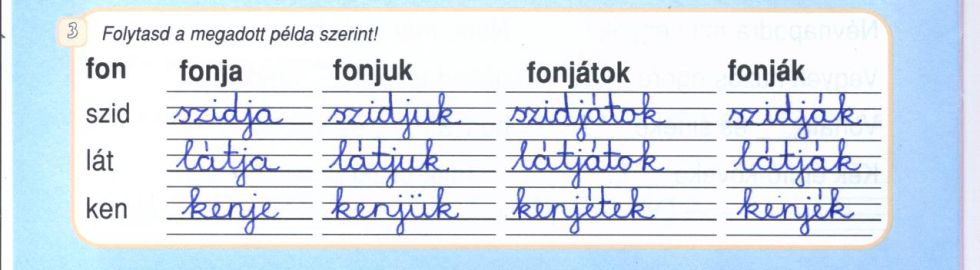 3 Folytasd a megadott példa szerint!
fon fonja fonjuk fonjátok fonják
szid szidja szidjuk szidjátok szidják
lát látja látjuk látjátok látják
ken kenje kenjük kenjétek kenjék